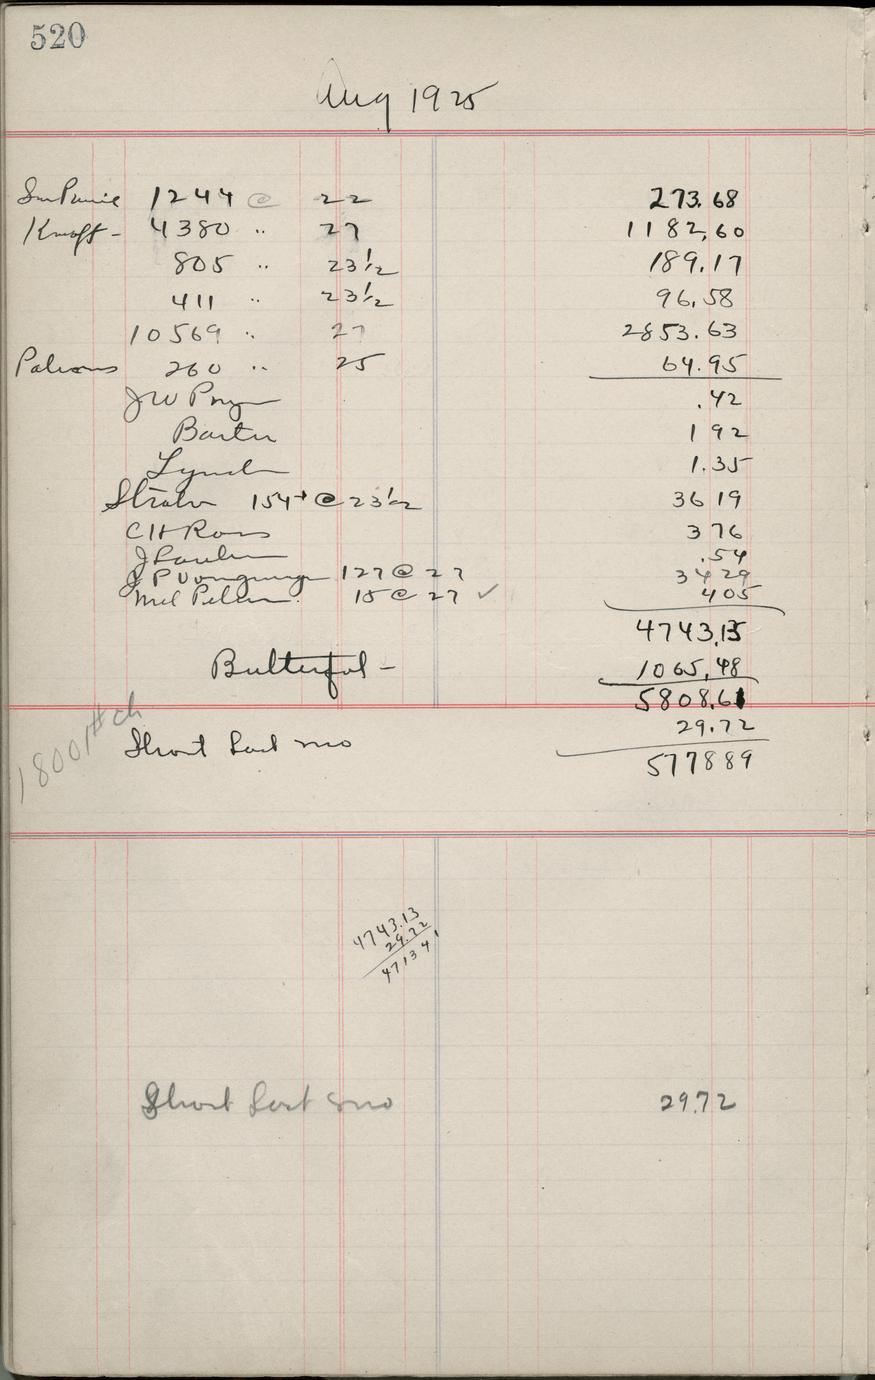 520
Aug 1925
1244 @ 22 273.68
Knoff - 4380 " 27 1182,60
805 " 23 1/2 189.17
411 " 23 1/2 96.58
10569 " 27 2853.63
Patrons 260 " 25 64.95
J W .42
Barter 1 92
Lynch 1.35
154# @ 23 1/2 36 19
C H Ross 3 76
J .54
J P 127 @ 27 34 29
Mel 15 @ 27 ✓ 4 05
4743.13
Butterfat - 1065,48
5808.61
1800# ch
Short Last mo 29.72
5778 89
4743.13
29.72
4713 41
Short Last mo 29.72